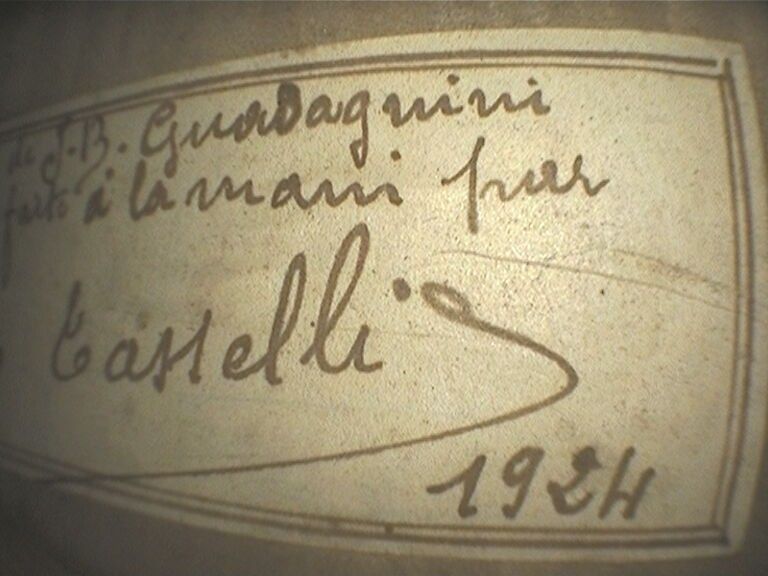 de J. B. Guadagnini
faite à la main par
Casselli
1924